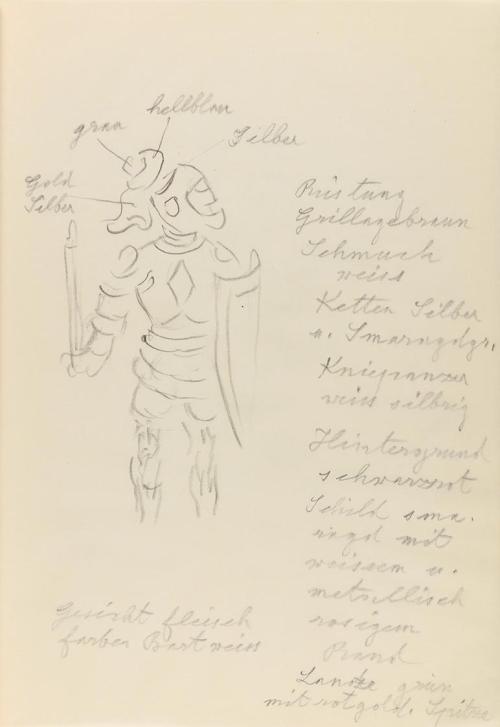 hellblau
grau
Silber
Gold
Silber
Rüstung
Grillagebraun
Schmuck
weiss
Ketten Silber
u. Smaragdgr.
Kniepanzer
weiss silbrig
Hintergrund
schwarzrot
Schild sma-
ragd mit
weissem u.
metallisch
rosigem
Rand
Lanze grün
mit rotgold. Spitze
Gesicht fleisch
farben Bart weiss